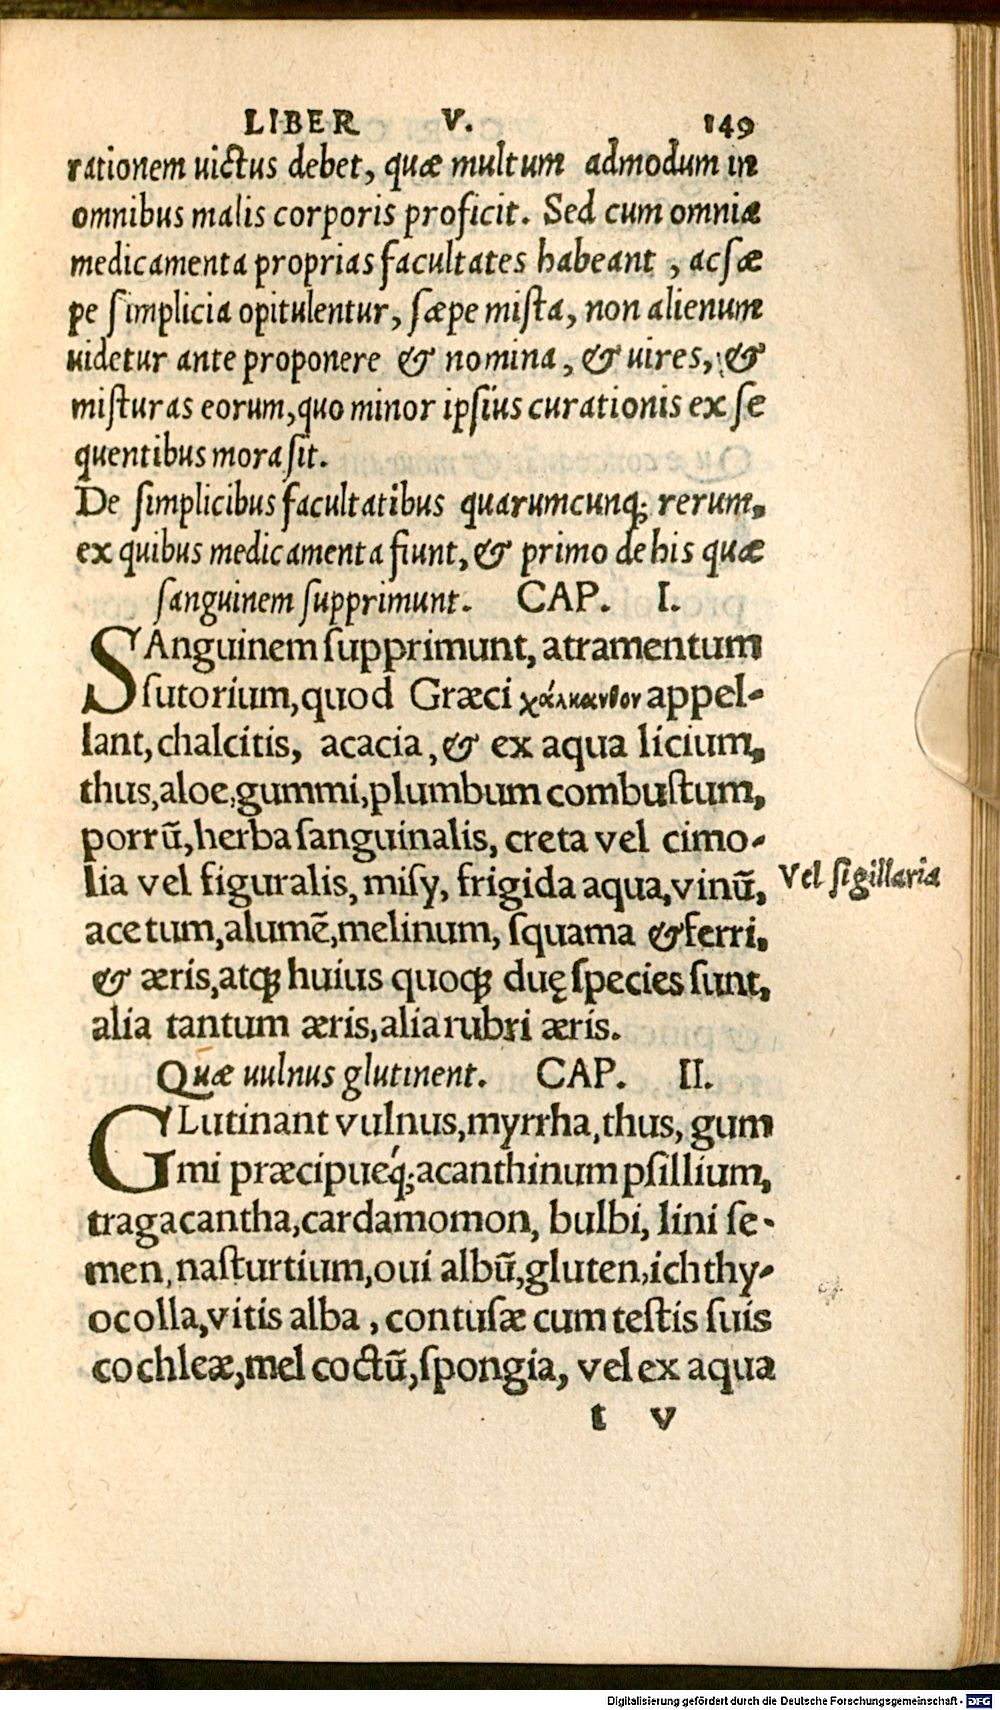 LIBER V. 149
rationem uictus debet, quæ multum admodum in
omnibus malis corporis proficit. Sed cum omnia
medicamenta proprias facultates habeant, ac sæ
pe simplicia opitulentur, sæpe mista, non alienum
uidetur ante proponere & nomina, & uires, & 
misturas eorum, quo minor ipsius curationis ex se
quentibus mora sit.
De simplicibus facultatibus quarumcunq; rerum,
ex quibus medicamenta fiunt, & primo de his quæ
sanguinem supprimunt. CAP. I.
SAnguinem supprimunt, atramentum
sutorium, quod Græci χάλκανθον appel-
lant, chalcitis, acacia, & ex aqua licium,
thus, aloe, gummi, plumbum combustum,
porrũ, herba sanguinalis, creta vel cimo-
lia vel figuralis, misy, frigida aqua, vinũ,
acetum, alumẽ, melinum, squama & ferri,
& æris, atq; huius quoq; duę species sunt,
alia tantum æris, alia rubri æris.
Vel sigillaria
Quæ uulnus glutinent. CAP. II.
GLutinant vulnus, myrrha, thus, gum
mi præcipueq́; acanthinum psillium,
tragacantha, cardamomon, bulbi, lini se-
men, nasturtium, oui albũ, gluten, ichthy-
ocolla, vitis alba, contusæ cum testis suis
cochleæ, mel coctũ, spongia, vel ex aqua
t v
Digitalisierung gefördert durch die Deutsche Forschungsgemeinschaft - DFG